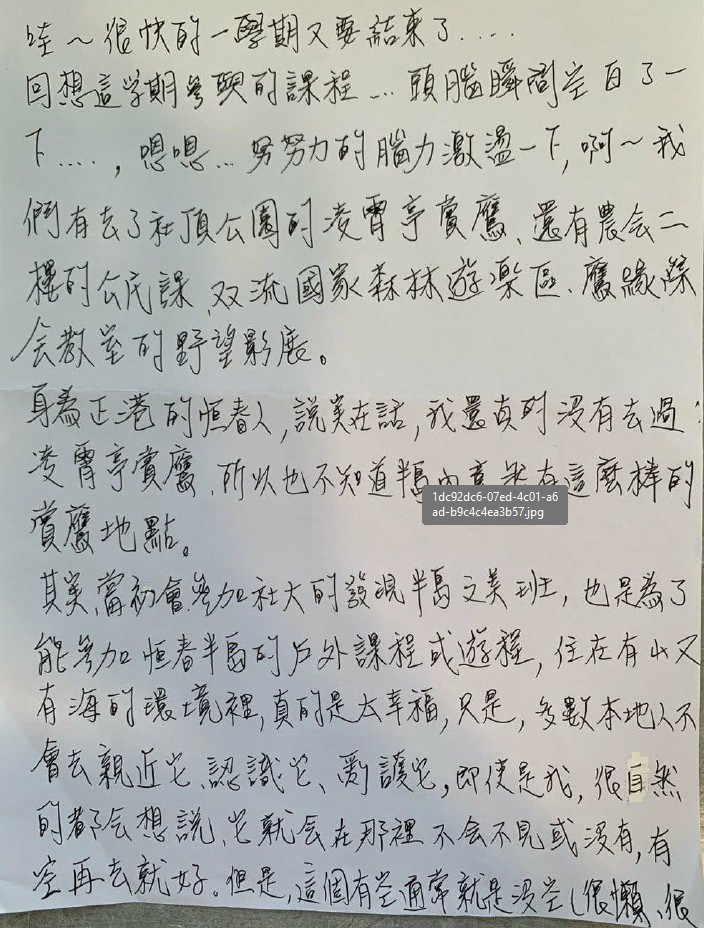 哇～很快的一學期又要結束了....
回想這学期參與的課程...頭腦瞬間空白了一
下....，嗯嗯...努努力的腦力激盪一下,啊～我
們有去了社頂公園的凌霄亭賞鷹、還有農会二
樓的公民課、双流國家森林遊楽區、鷹緣綜
会教室的野望影展。
身為正港的恒春人,說实在話,我還真的沒有去過
凌霄亭賞鷹、所以也不知道半島內竟然有這麼棒的
1dc92dc6-07ed-4c01-a6
ad-b9c4c4ea3b57.jpg
賞鷹地點。
其实,當初會參加社大的發現半島之美班，也是為了
能參加恒春半島的戶外課程或遊程，住在有山又
有海的環境裡,真的是太幸福,只是，多數本地人不
會去親近它、認識它、愛護它,即使是我,很自然
的都会想說、它就会在那裡不会不見或沒有,有
空再去就好。但是,這個有空通常就是沒空(很懶、很